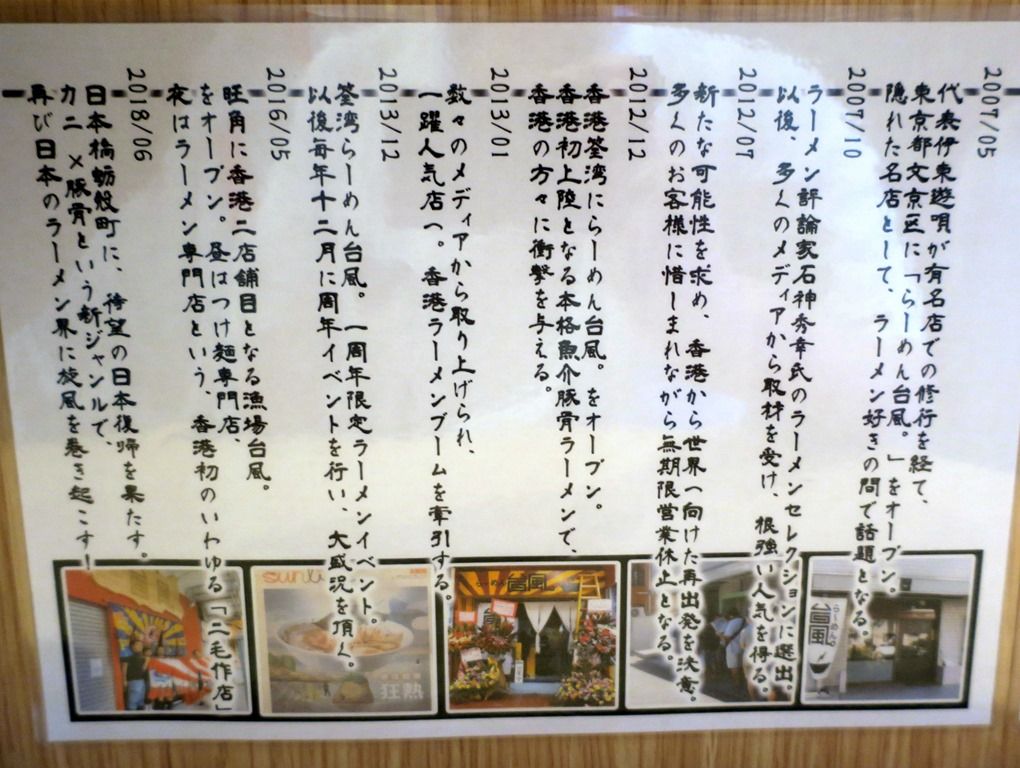 2007/05
代表伊東遊唄が有名店での修行を経て、
東京都文京区に「らーめん台風。」をオープン。
隠れた名店として、ラーメン好きの間で話題となる。
2007/10
ラーメン評論家石神秀幸氏のラーメンセレクションに選出。
以後、多くのメディアから取材を受け、根強い人気を得る。
2012/07
新たな可能性を求め、香港から世界へ向けた再出発を決意。
多くのお客様に惜しまれながら無期限営業休止となる。
2012/12
香港荃湾にらーめん台風。をオープン。
香港初上陸となる本格魚介豚骨ラーメンで、
香港の方々に衝撃を与える。
2013/01
数々のメディアから取り上げられ、
一躍人気店へ。香港ラーメンブームを牽引する。
2013/12
荃湾らーめん台風。一周年限定ラーメンイベント。
以後毎年十二月に周年イベントを行い、大盛況を頂く。
2016/05
旺角に香港二店舗目となる漁場台風。
をオープン。昼はつけ麺専門店、
夜はラーメン専門店という、香港初のいわゆる「二毛作店」
2018/06
日本橋蛎殻町に、待望の日本復帰を果たす。
カニ×豚骨という新ジャンルで、
再び日本のラーメン界に旋風を巻き起こす!
らーめん
台風
らーめん 台風
狂熱